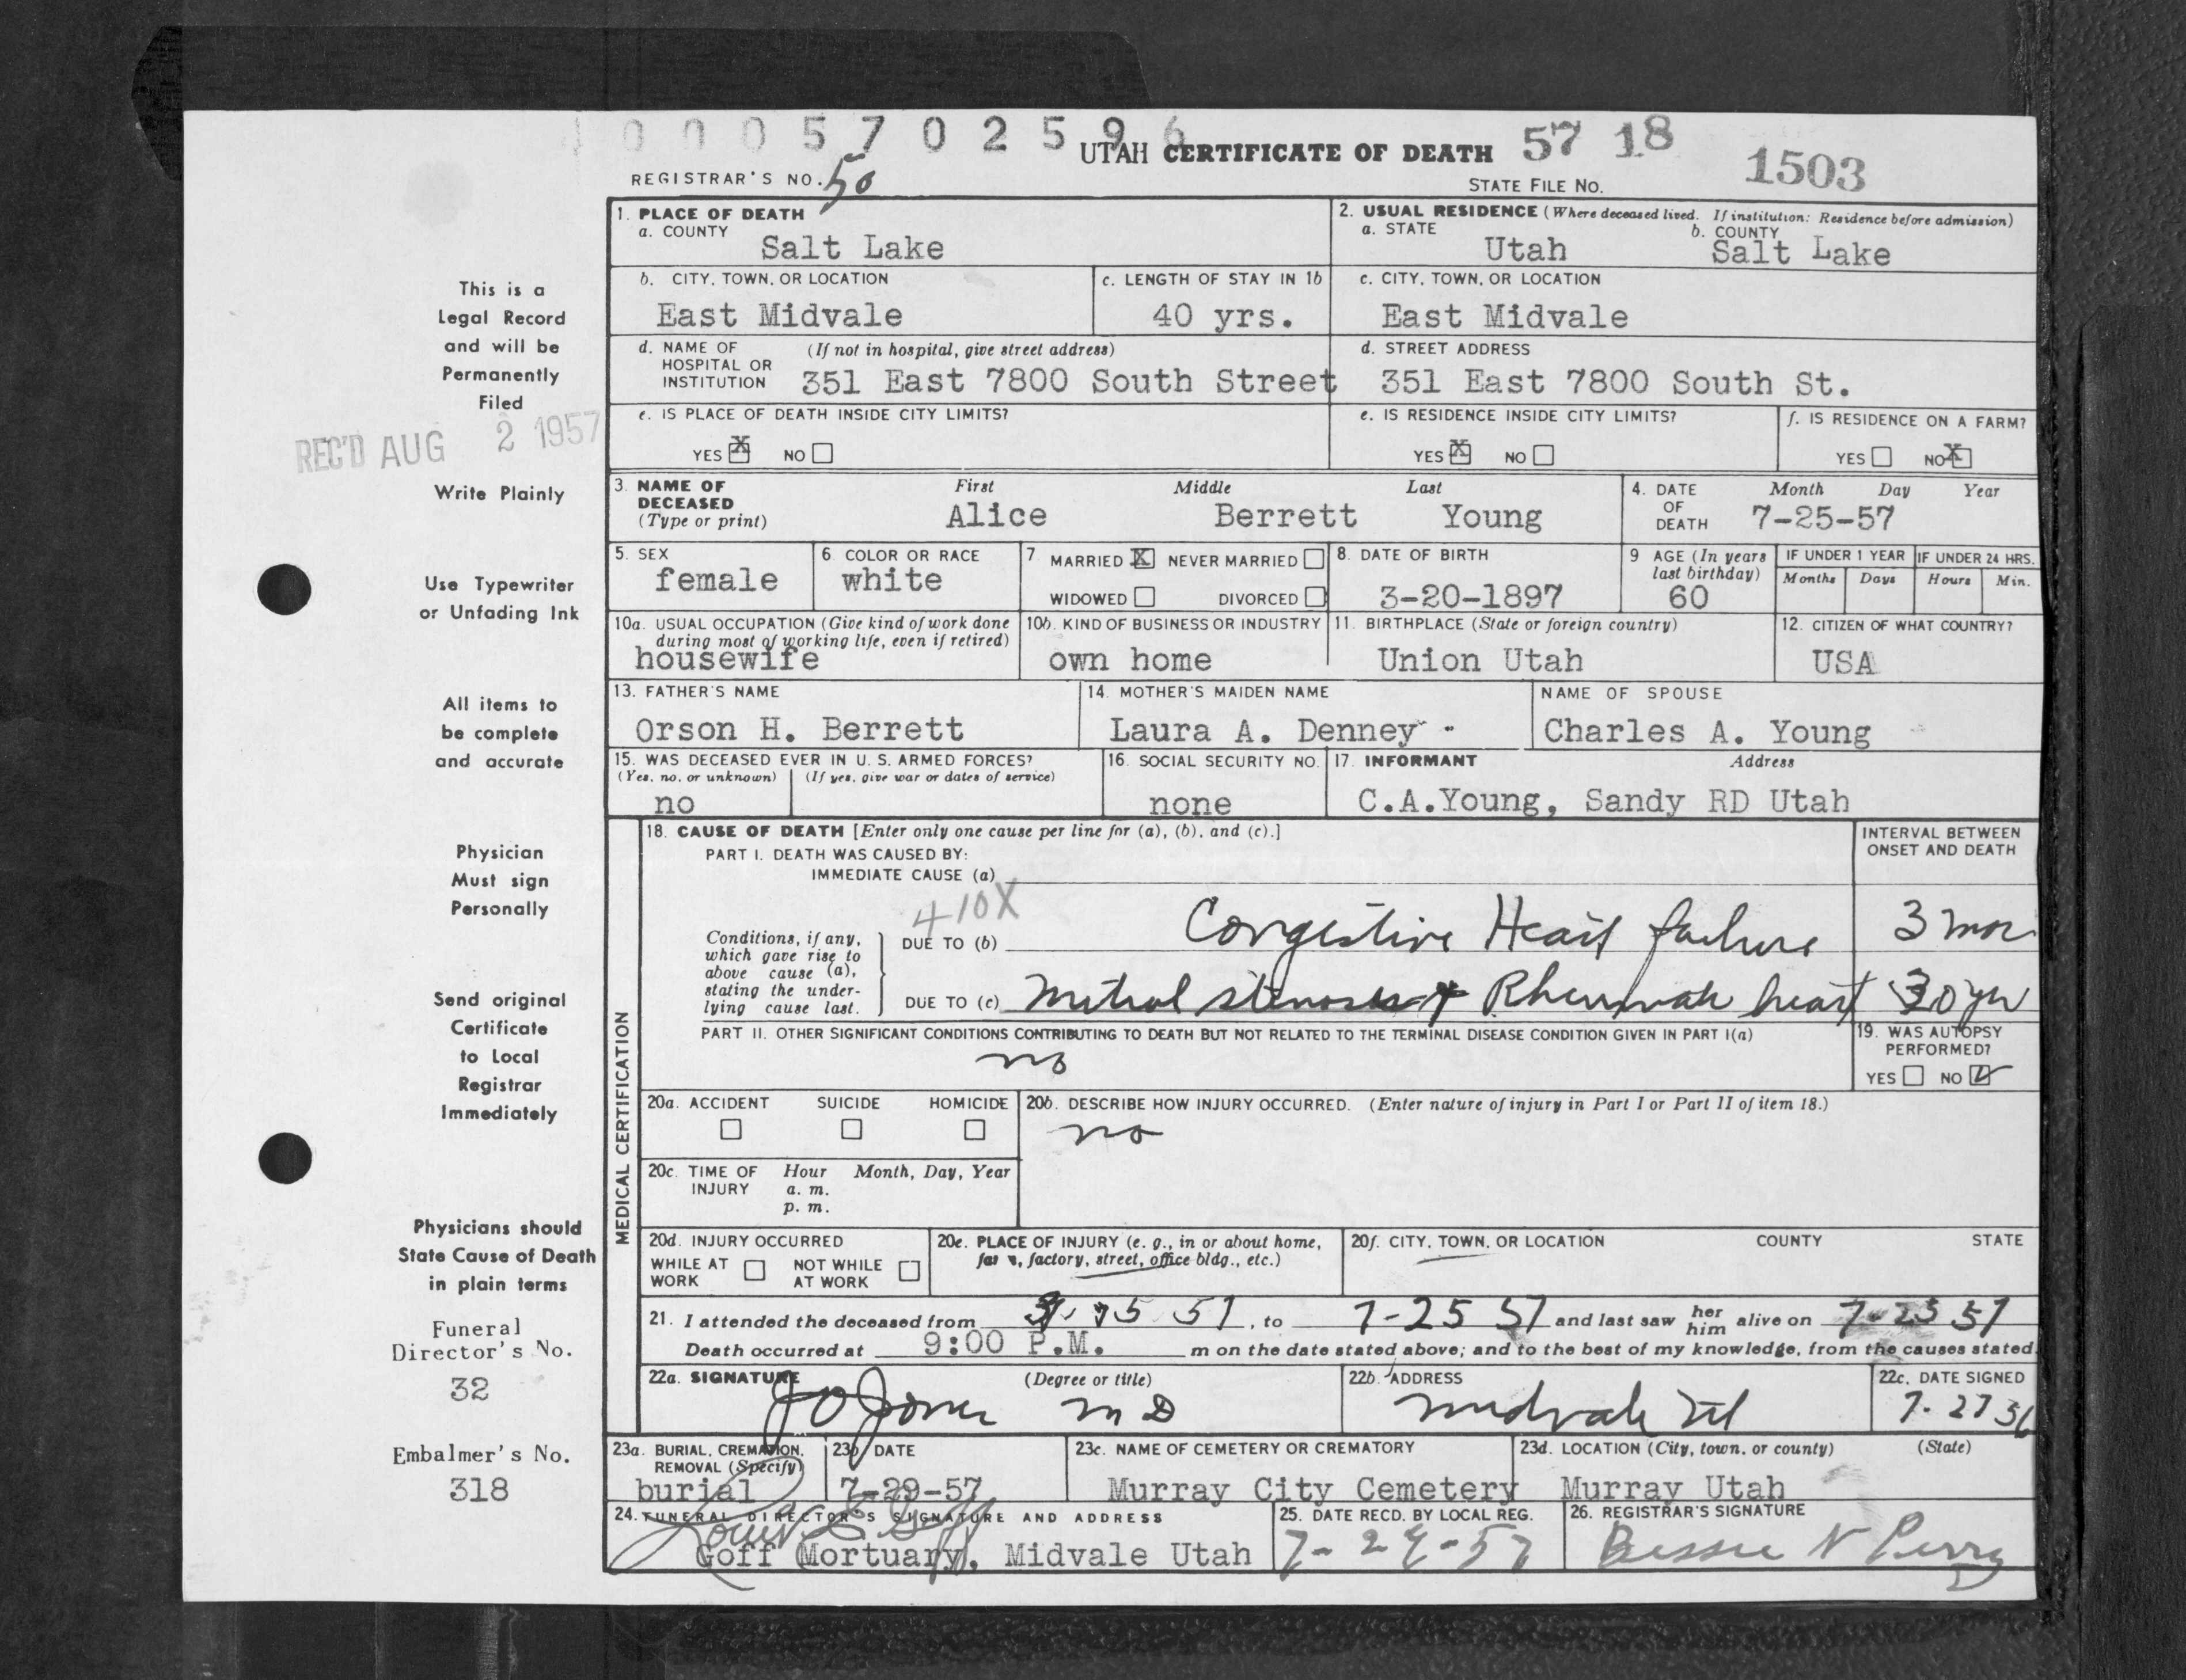 0 0 0 5 7 0 2 5 9 6
UTAH CERTIFICATE OF DEATH 57 18 1503
REGISTRAR'S NO. 50 STATE FILE NO.
1. PLACE OF DEATH
a. COUNTY
Salt Lake
2. USUAL RESIDENCE (Where deceased lived. If institution: Residence before admission)
a. STATE b. COUNTY
Utah Salt Lake
b. CITY, TOWN, OR LOCATION
East Midvale
c. LENGTH OF STAY IN 1b
40 yrs.
c. CITY, TOWN, OR LOCATION
East Midvale
d. NAME OF (If not in hospital, give street address)
HOSPITAL OR
INSTITUTION 351 East 7800 South Street
d. STREET ADDRESS
351 East 7800 South St.
e. IS PLACE OF DEATH INSIDE CITY LIMITS?
YES X NO
e. IS RESIDENCE INSIDE CITY LIMITS?
YES X NO
f. IS RESIDENCE ON A FARM?
YES NO X
3. NAME OF First Middle Last
DECEASED
(Type or print) Alice Berrett Young
4. DATE Month Day Year
OF
DEATH 7-25-57
5. SEX
female
6. COLOR OR RACE
white
7. MARRIED X NEVER MARRIED
WIDOWED DIVORCED
8. DATE OF BIRTH
3-20-1897
9 AGE (In years
last birthday)
60
IF UNDER 1 YEAR IF UNDER 24 HRS.
Months Days Hours Min.
10a. USUAL OCCUPATION (Give kind of work done
during most of working life, even if retired)
housewife
10b. KIND OF BUSINESS OR INDUSTRY
own home
11. BIRTHPLACE (State or foreign country)
Union Utah
12. CITIZEN OF WHAT COUNTRY?
USA
13. FATHER'S NAME
Orson H. Berrett
14. MOTHER'S MAIDEN NAME
Laura A. Denney
NAME OF SPOUSE
Charles A. Young
15. WAS DECEASED EVER IN U. S. ARMED FORCES?
(Yes, no, or unknown) (If yes, give war or dates of service)
no
16. SOCIAL SECURITY NO.
none
17. INFORMANT Address
C.A.Young, Sandy RD Utah
MEDICAL CERTIFICATION
18. CAUSE OF DEATH [Enter only one cause per line for (a), (b), and (c).]
INTERVAL BETWEEN
ONSET AND DEATH
PART I. DEATH WAS CAUSED BY:
IMMEDIATE CAUSE (a)
410X
Conditions, if any,
which gave rise to
above cause (a),
stating the under-
lying cause last.
DUE TO (b) Congestive Heart failure 3 mos
DUE TO (c) Mitral stenosis & Rheumatic heart 30 yrs
PART II. OTHER SIGNIFICANT CONDITIONS CONTRIBUTING TO DEATH BUT NOT RELATED TO THE TERMINAL DISEASE CONDITION GIVEN IN PART I(a)
no
19. WAS AUTOPSY
PERFORMED?
YES NO
20a. ACCIDENT SUICIDE HOMICIDE
20b. DESCRIBE HOW INJURY OCCURRED. (Enter nature of injury in Part I or Part II of item 18.)
no
20c. TIME OF Hour Month, Day, Year
INJURY a. m.
p. m.
20d. INJURY OCCURRED
WHILE AT NOT WHILE
WORK AT WORK
20e. PLACE OF INJURY (e. g., in or about home,
farm, factory, street, office bldg., etc.)
20f. CITY, TOWN, OR LOCATION COUNTY STATE
21. I attended the deceased from 57, to 7-25 57 and last saw her him alive on 7-25 57
Death occurred at 9:00 P.M. m on the date stated above; and to the best of my knowledge, from the causes stated.
22a. SIGNATURE (Degree or title)
J O Jones M D
22b. ADDRESS
Midvale Ut
22c. DATE SIGNED
7-27
23a. BURIAL, CREMATION,
REMOVAL (Specify)
burial
23b. DATE
7-29-57
23c. NAME OF CEMETERY OR CREMATORY
Murray City Cemetery
23d. LOCATION (City, town, or county) (State)
Murray Utah
24. FUNERAL DIRECTOR'S SIGNATURE AND ADDRESS
Goff
Goff Mortuary, Midvale Utah
25. DATE RECD. BY LOCAL REG.
7-29-57
26. REGISTRAR'S SIGNATURE
Bessie N Perry
This is a
Legal Record
and will be
Permanently
Filed
REC'D AUG 2 1957
Write Plainly
Use Typewriter
or Unfading Ink
All items to
be complete
and accurate
Physician
Must sign
Personally
Send original
Certificate
to Local
Registrar
Immediately
Physicians should
State Cause of Death
in plain terms
Funeral
Director's No.
32
Embalmer's No.
318